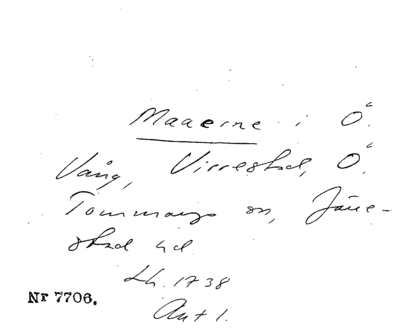 Maaerne i Ö.
Vång, Virrestad, Ö.
Tommarps sn, Järre-
stad hd
Lh. 1738
Nr 7706.
Ant 1.